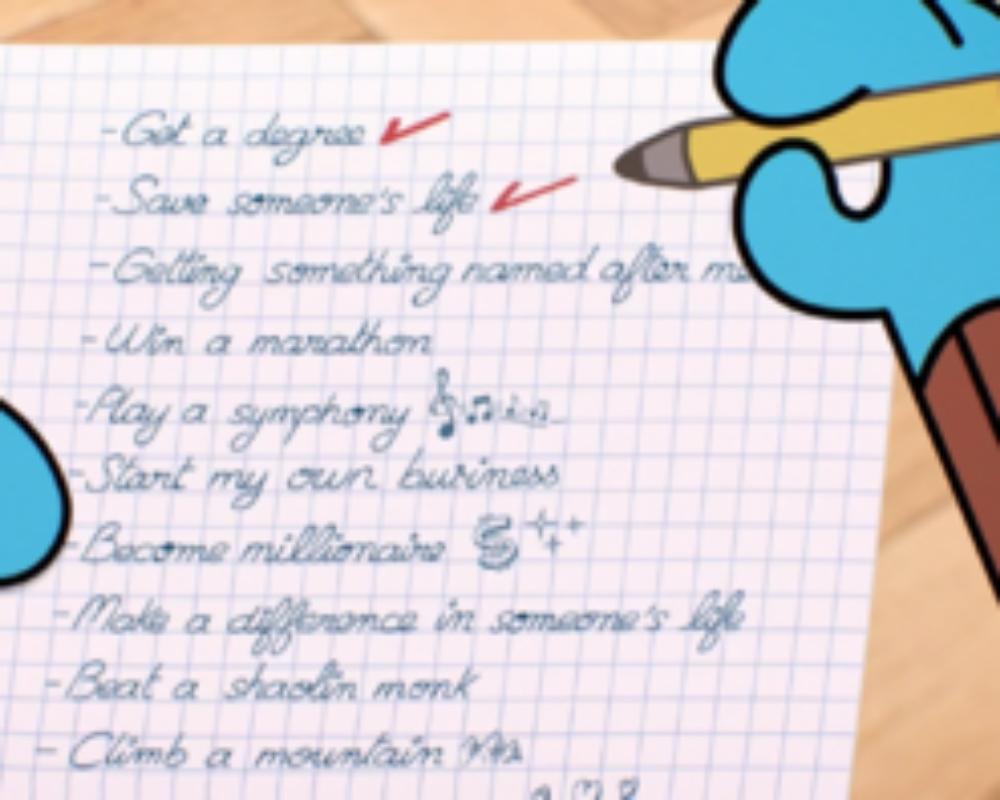 -Get a degree
-Save someone's life
-Getting something named after me
-Win a marathon
-Play a symphony
-Start my own business
-Become millionaire
-Make a difference in someone's life
-Beat a shaolin monk
-Climb a mountain